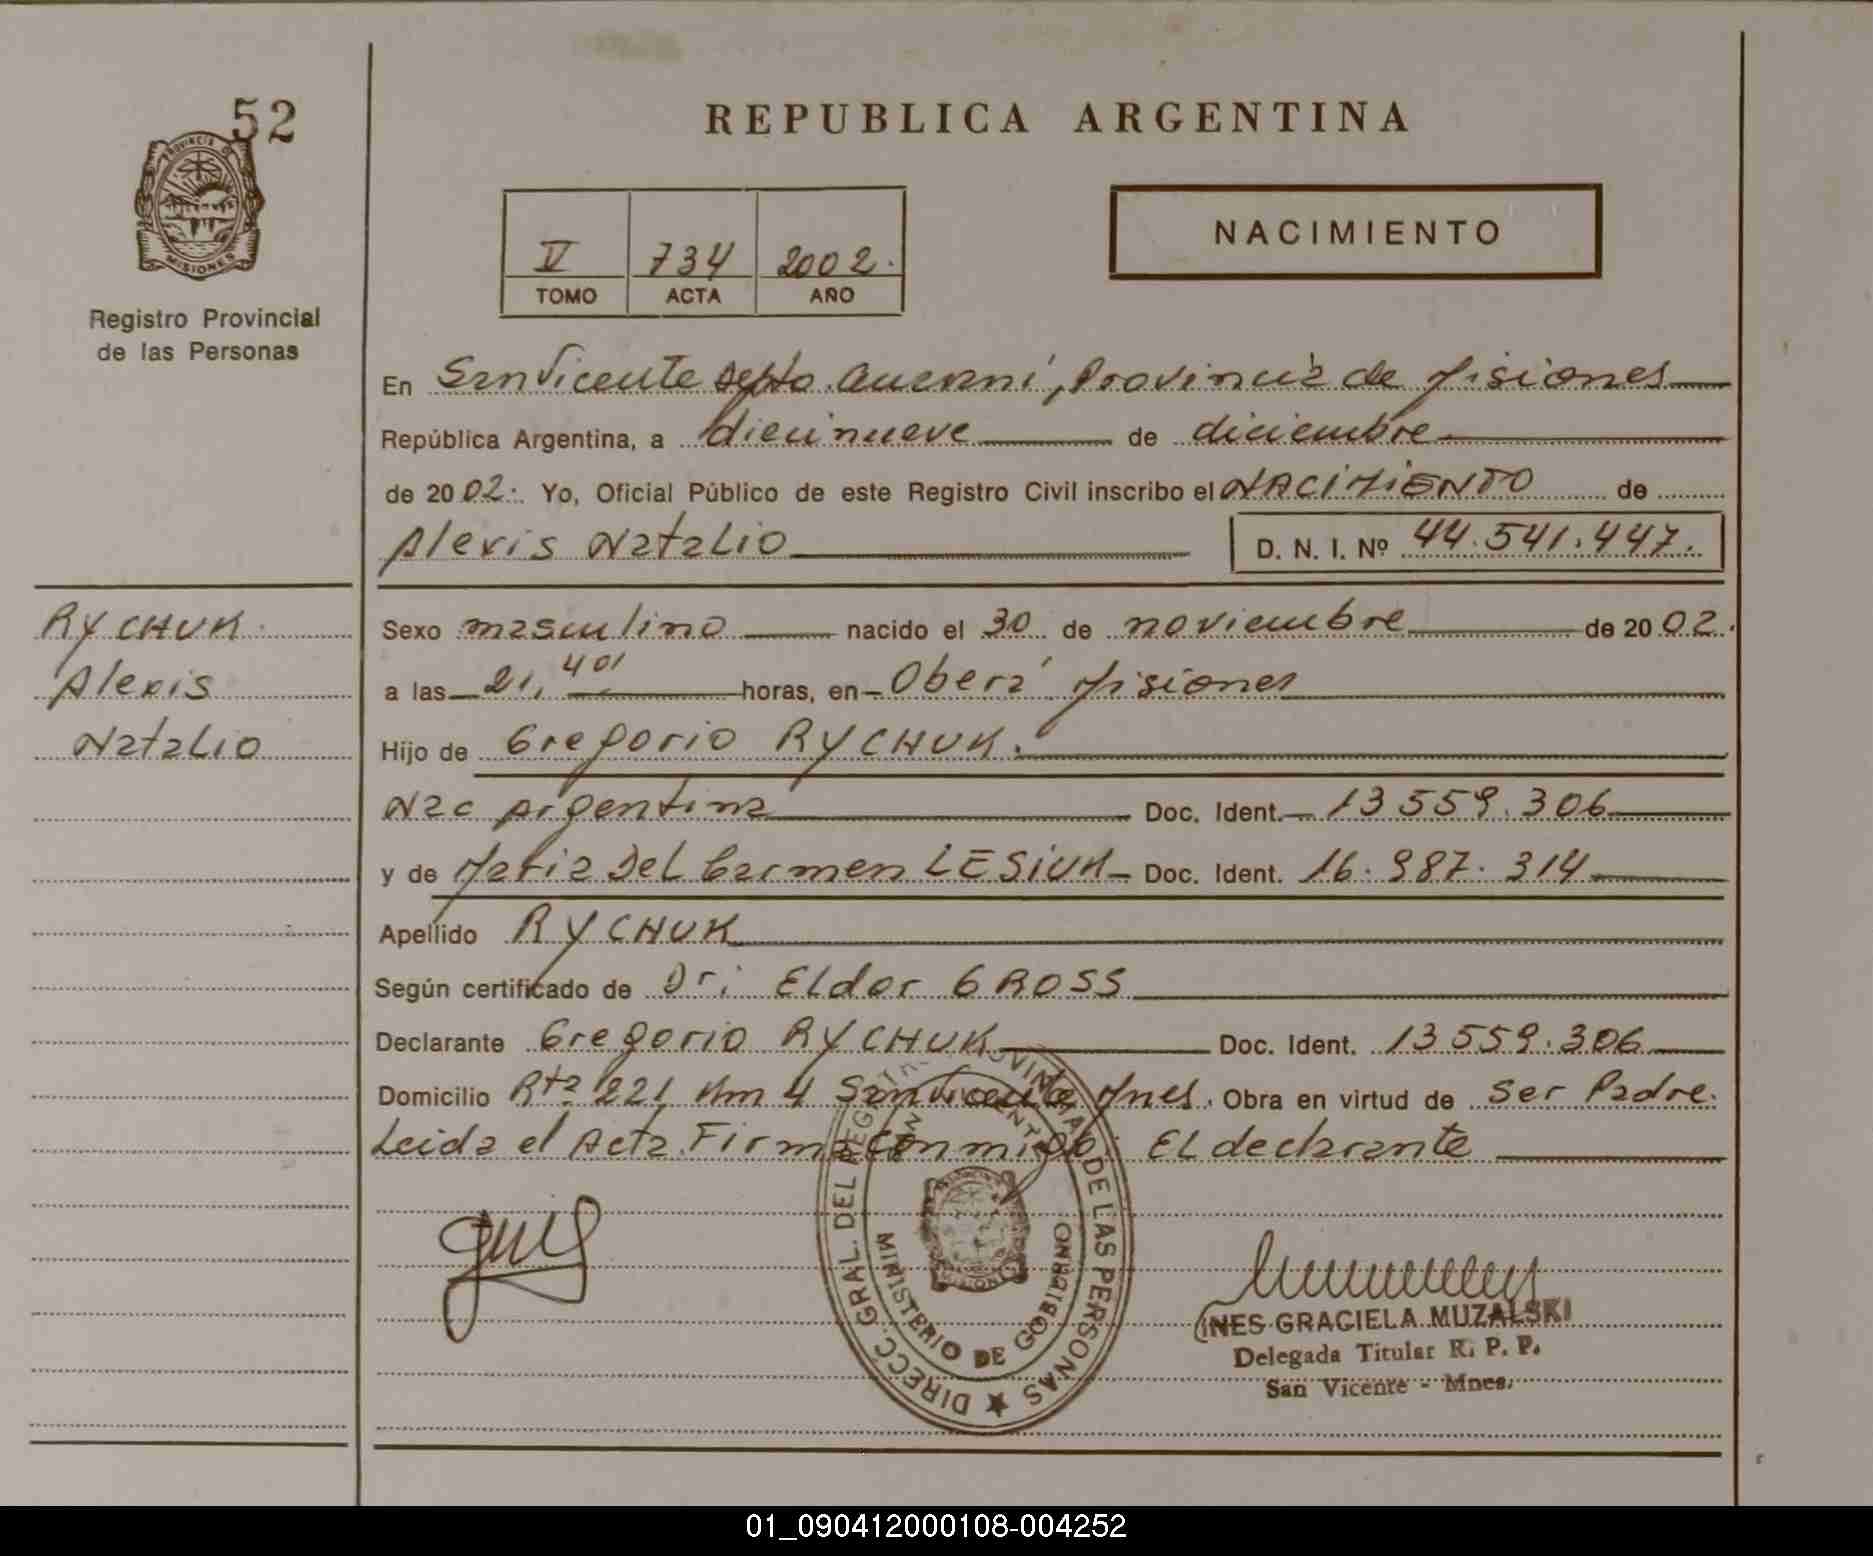 52
PROVINCIA DE
MISIONES
Registro Provincial
de las Personas
REPUBLICA ARGENTINA
V 734 2002.
TOMO ACTA AÑO
NACIMIENTO
En San Vicente depto. Guaraní, Provincia de Misiones
República Argentina, a diecinueve de diciembre
de 2002. Yo, Oficial Público de este Registro Civil inscribo el NACIMIENTO de
Alexis Natalio D. N. I. Nº 44.541.447.
RYCHUK
Alexis
Natalio
Sexo masculino nacido el 30 de noviembre de 2002.
a las 21, 40' horas, en Oberá Misiones
Hijo de Gregorio RYCHUK.
Nac Argentina Doc. Ident. 13559.306
y de Maria Del Carmen LESIUK Doc. Ident. 16.987.314
Apellido RYCHUK
Según certificado de Dr: Eldor GROSS
Declarante Gregorio RYCHUK Doc. Ident. 13559.306
Domicilio Rta 221 Km 4 San Vicente Mnes. Obra en virtud de ser Padre.
Leida el Acta Firma con migo: El declarante
DIRECC. GRAL. DEL REGISTRO PROVINCIAL DE LAS PERSONAS
MINISTERIO DE GOBIERNO
MISIONES
INES GRACIELA MUZALSKI
Delegada Titular R. P. P.
San Vicente - Mnes.
01_090412000108-004252